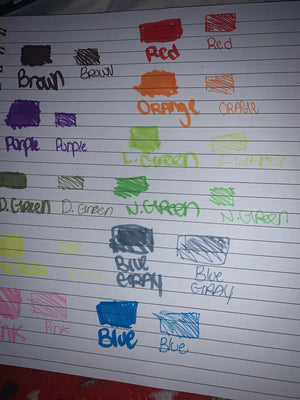 Red Red
Brown BROWN
Orange ORANGE
Purple Purple
L.Green L.Green
D.Green D.Green N.Green N.Green
Blue Blue
GRAY GRAY
INK Pink
Blue Blue